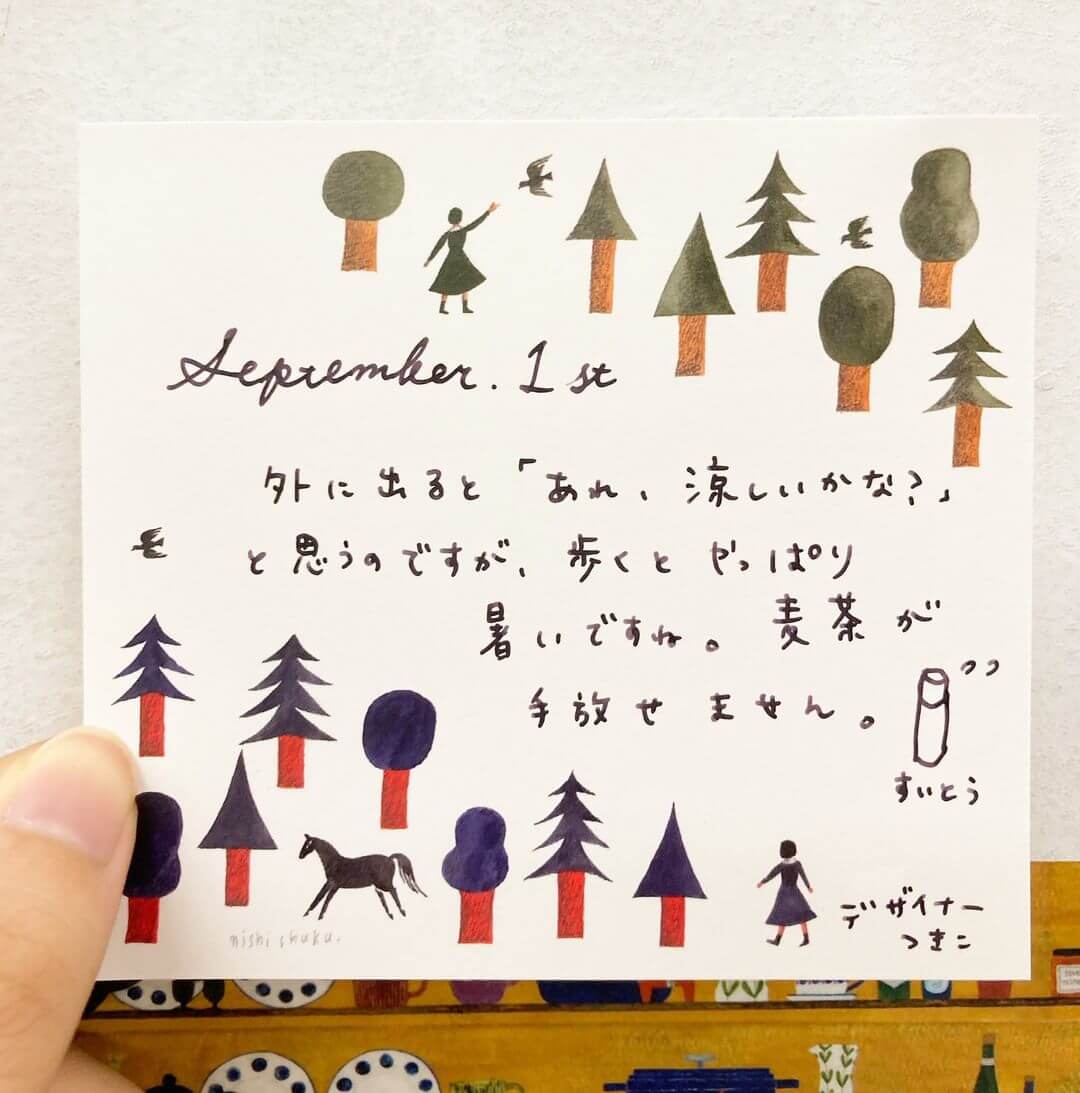 September. 1st
外に出ると「あれ、涼しいかな?」
と思うのですが、歩くと やっぱり
暑いですね。麦茶が
手放せません。
すいとう
デザイナー
つきこ
nishi shuku.